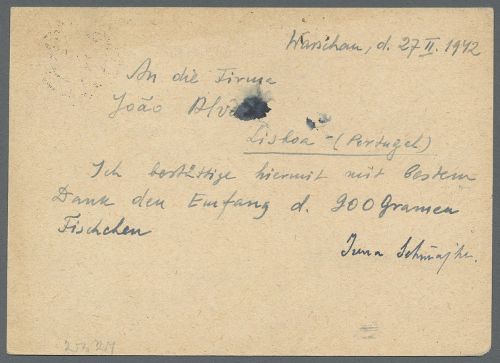 Warschau, d. 27 II. 1942
An die Firma
João Alva
Lisboa - (Portugal)
Ich bestättige hiermit mit bestem
Dank den Emfang d. 200 Gramen
Fischchen